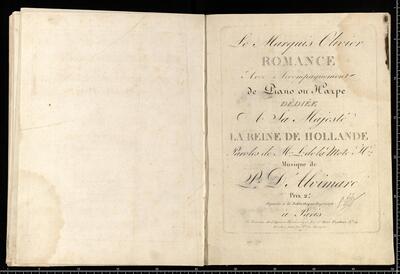 Le Marquis Olivier
ROMANCE
Avec Accompagnement
de Piano ou Harpe
DÉDIÉE
A Sa Majesté
LA REINE DE HOLLANDE
Paroles de Mr. L. de la Mote
Musique de
Ph. D'Alvimare
Prix 2f
à Paris